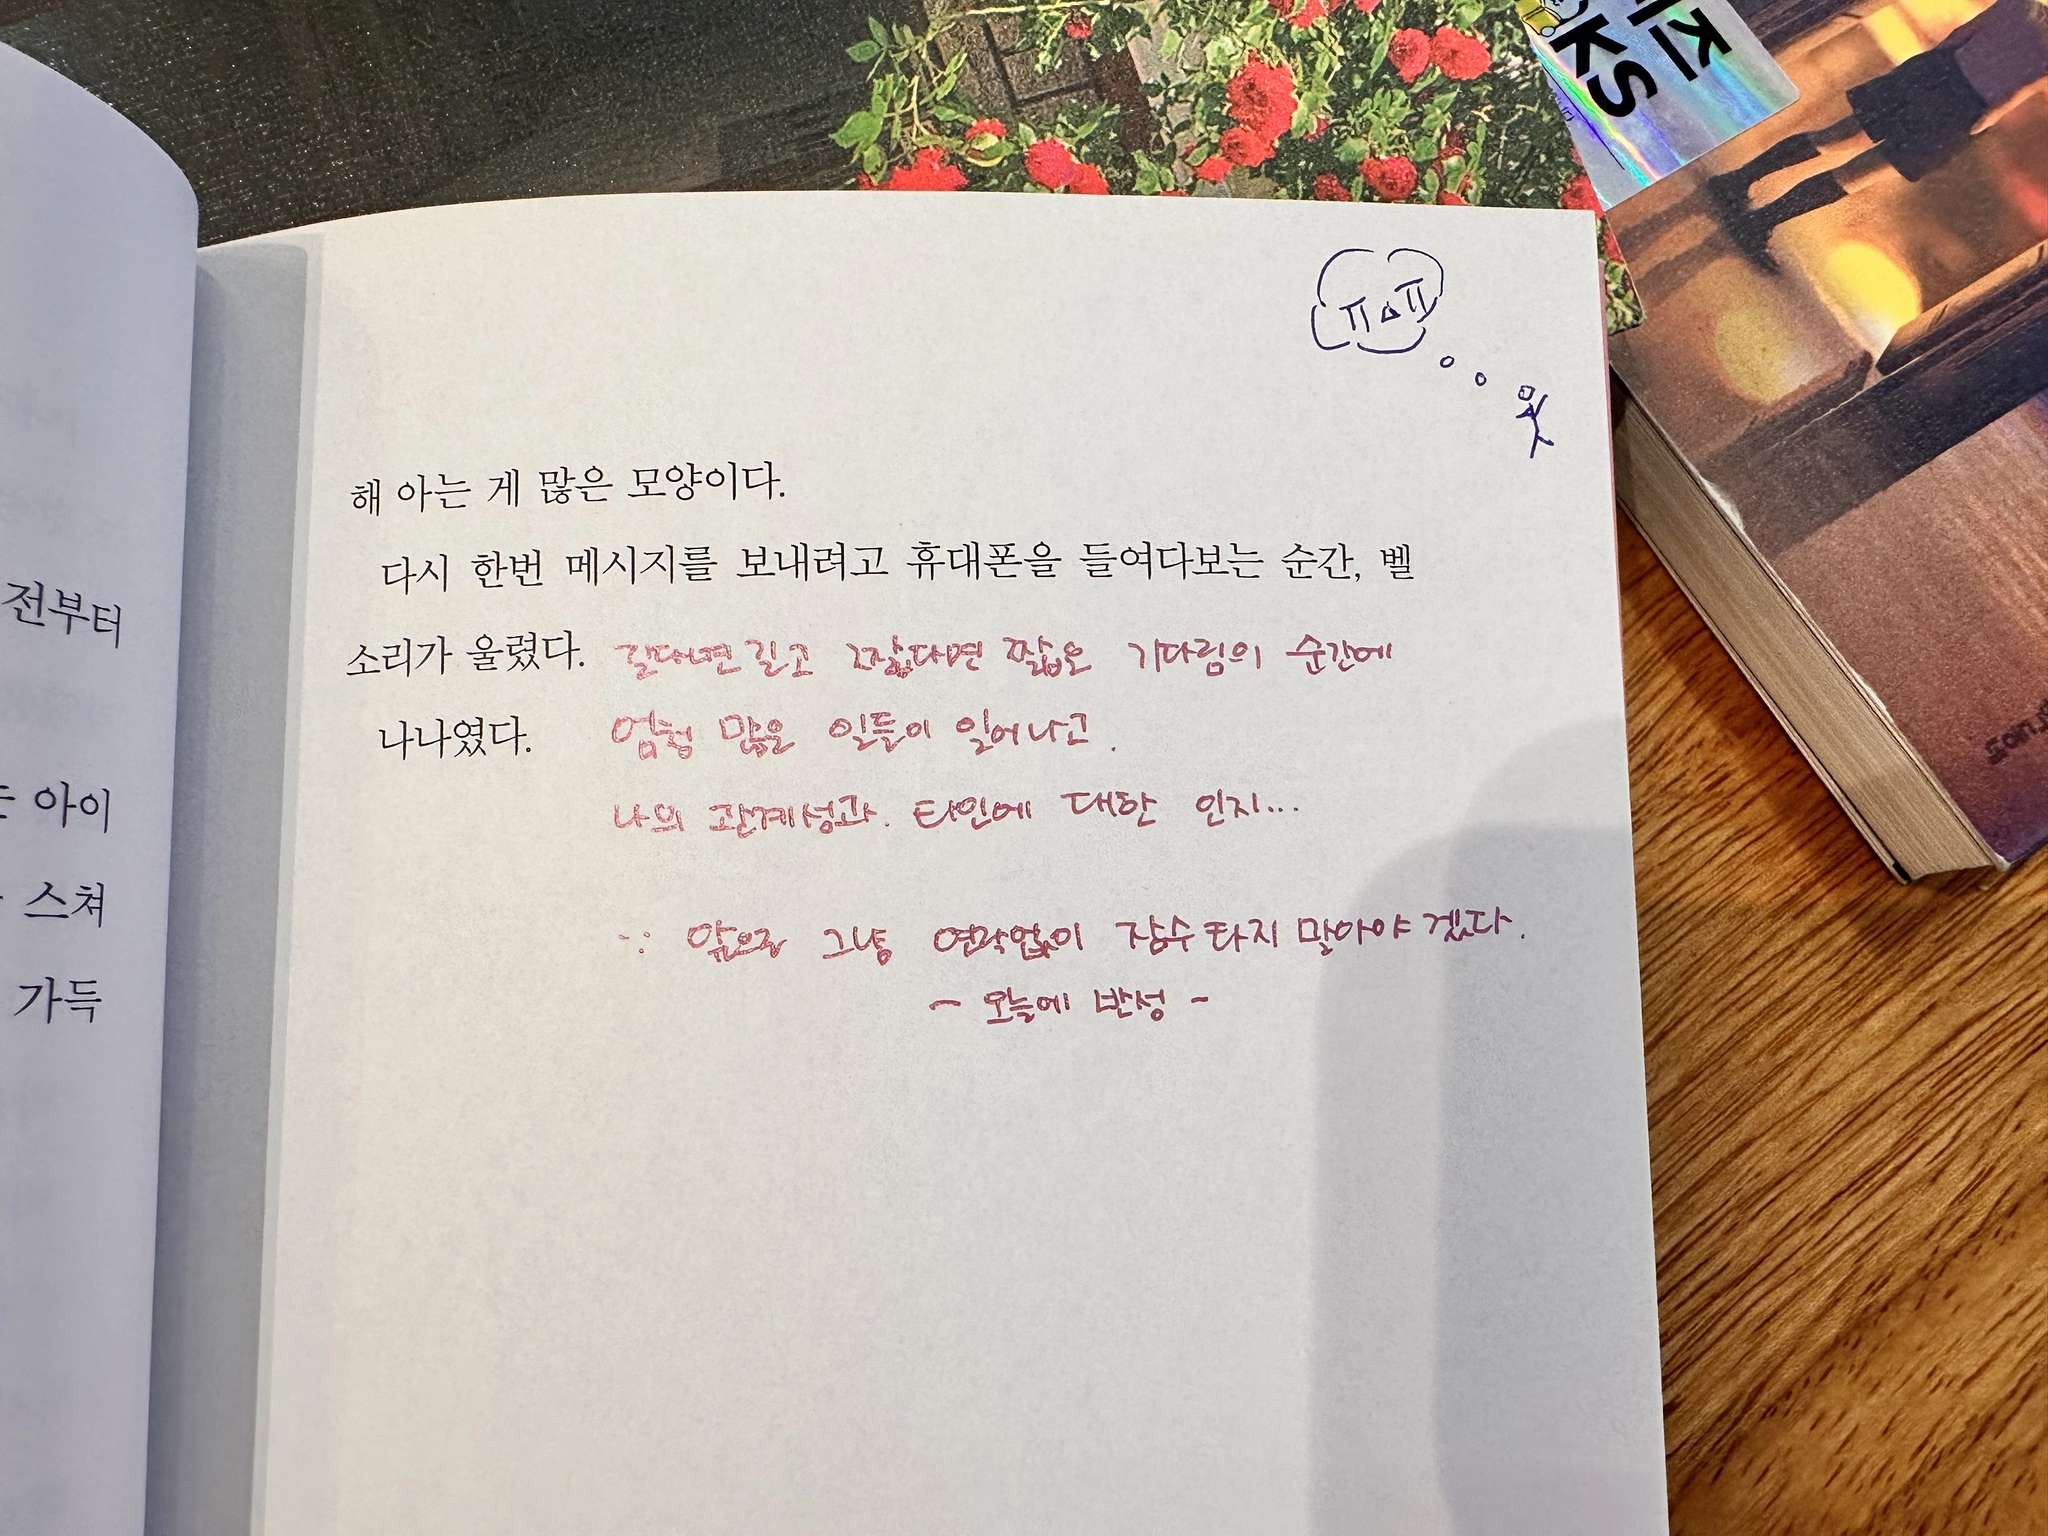 전부터
아이
스쳐
가득
ㅠㅅㅠ
해 아는 게 많은 모양이다.
다시 한번 메시지를 보내려고 휴대폰을 들여다보는 순간, 벨
소리가 울렸다. 길다면 길고 짧다면 짧은 기다림의 순간에
나나였다. 엄청 많은 일들이 일어나고.
나의 관계성과. 타인에 대한 인지...
∵ 앞으로 그냥 연락없이 잠수타지 말아야 겠다.
- 오늘에 반성 -